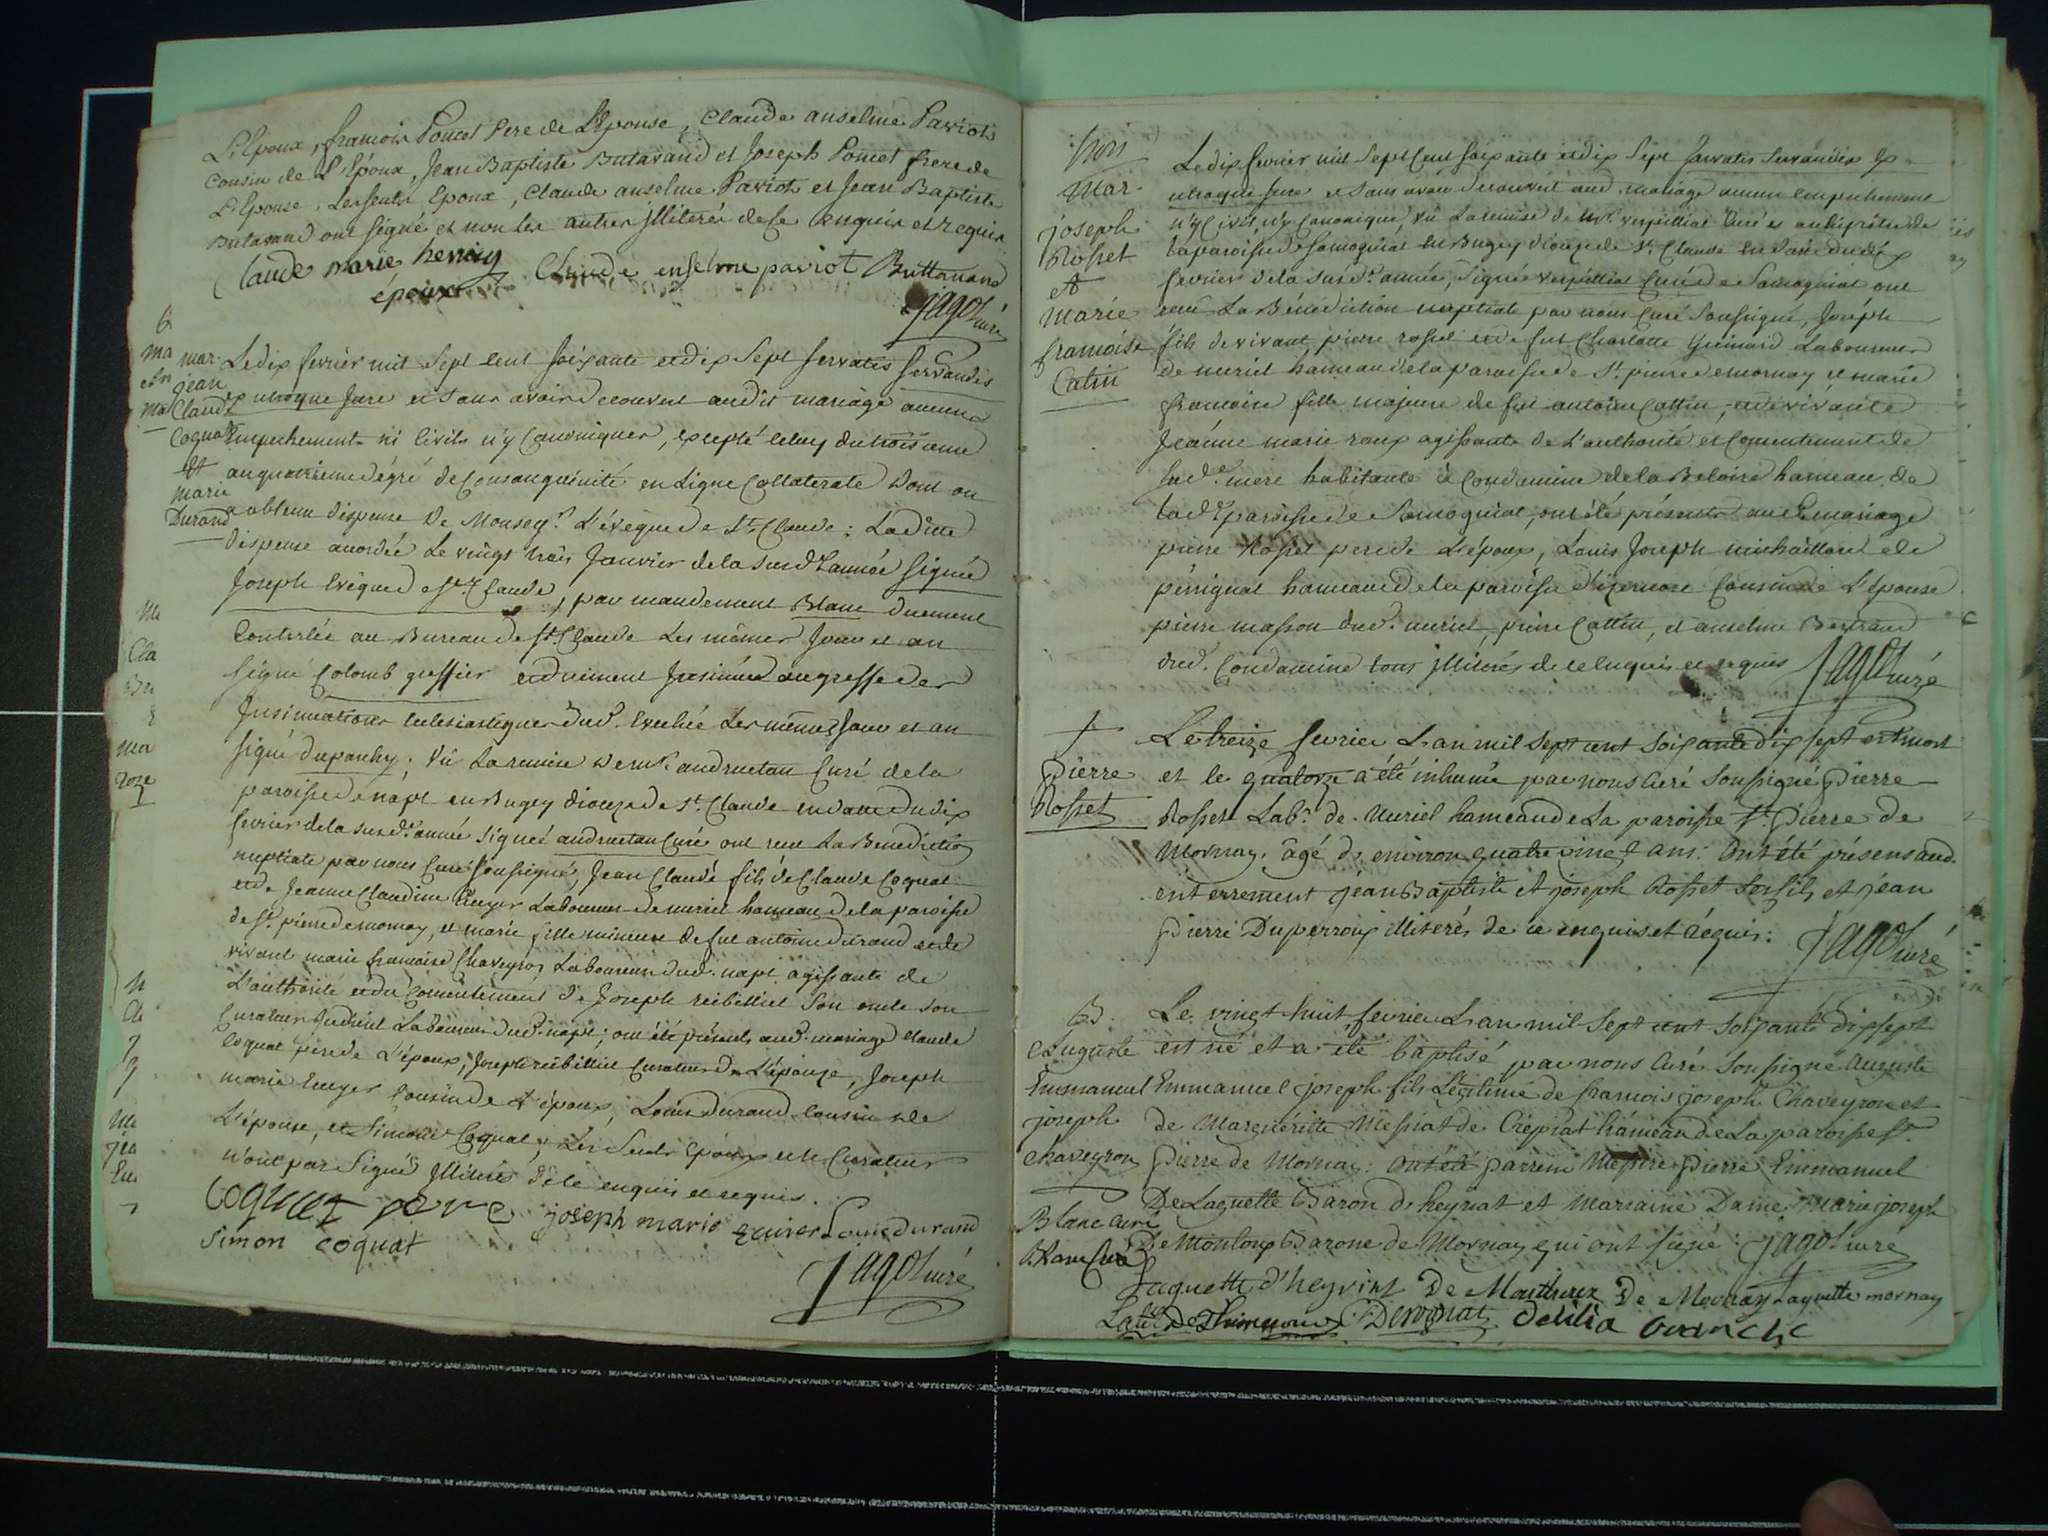 L'Epoux, francois Poncet Pere de L'Epouse, Claude anselme Paviot
Cousin de L'Epoux, Jean Baptiste Butavand et Joseph Poncet frere de
L'Epouse. Les seuls Epoux, Claude anselme Paviot et Jean Baptiste
Butavand ont signé et non les autres illiterés de ce enquis et requis
Claude marie henry Claude enselme paviot Buttavand
époux
Jagot curé
mar.
jean
Claude
Coquat
et
marie
Durand
Le dix fevrier mil sept cent soixante et dix sept servatis servandis
ex utroque Jure et sans avoir decouvert audit mariage aucuns
empechements ni Civils n'y Canoniques, excepté celuy du troisieme
au quatrieme dégré de Consanguinité en Ligne Collaterale dont on
a obtenu dispense de Monseigr. L'évêque de St. Claude; La ditte
dispense accordée Le vingt trois Janvier de la susd. année signée
Joseph Evêque de St. Claude, par mandement Blanc duement
Controlée au Bureau de St. Claude Les mêmes Jour et an
signé Colomb greffier et duement Insinuée au greffe des
Insinuations Eclesiastiques dud. Evechée Les mêmes Jour et an
signé dupanhy; Vû La remise de mr. andruetan Curé de la
paroisse de napt en Bugey dioceze de St. Claude en datte du dix
fevrier de la susde. année signée andruetan Curé ont recu La Benediction
nuptiale par nous Curé soussigné, Jean Claude fils de Claude Coquat
et de Jeanne Claudine Laboureur de muriel hameau de la paroisse
de St. pierre de mornay, et marie fille mineure de fut antoine durand et de
vivant marie francoise Chaveyron Laboureur dud. napt agissante de
L'authorité et du Consentement de Joseph reibilliet son oncle son
Curateur Laboureur dud. napt; ont été présents aud. mariage Claude
Coquat pere de L'époux, Joseph reibilliet Curateur de L'épouze, Joseph
marie Cousin de L'époux, Louis Durand Cousin de
L'épouse, et Simon Coquat; Les Seuls époux et le Curateur
n'ont pas signé Illiterés de ce enquis et requis.
Coquat pere joseph marie Louis durand
Simon coquat
Jagot curé
Mar.
joseph
Rosset
et
marie
francoise
Catin
Le dix fevrier mil sept Cent soixante et dix sept servatis servandis ex
utroque Jure et sans avoir decouvert aud. mariage aucun empechement
n'y Civil, n'y Canonique, vû La remise de mr. verpilliat Curé et archiprêtre de
la paroisse de Samogniat en Bugey dioceze de St. Claude en datte du dix
fevrier de la susde. année, signée verpilliat Curé de Samogniat ont
recu La Bénédiction nuptiale par nous Curé soussigné, Joseph
fils de vivant pierre rosset et de fut Charlotte Laboureur
de muriel hameau de la paroisse de St. pierre de mornay et marie
francoise fille majeure de fut antoine Cattin, et de vivante
Jeanne marie roux agissante de L'authorité et Consentement de
sad. mere habitante à Condamine de la Beloire hameau de
lade. paroisse de Samogniat, ont été présents aud. mariage
pierre Rosset pere de L'époux, Louis Joseph michaillard de
pérignat hameau de la paroisse d'izernore Cousin de L'épouse
pierre masson dud. muriel, pierre Cattin, et anselme Bertrand
dud. Condamine tous illiterés de ce enquis et requis Jagot curé
†
Pierre
Rosset
Le treize fevrier L'an mil sept cent soixante dix sept est mort
et le quatorze a été inhumé par nous Curé soussigné Pierre
Rosset Labr. de Muriel hameau de La paroisse St. Pierre de
Mornay. âgé d'environ quatre vingt ans. Ont été présens aud.
enterrement Jean Baptiste et joseph Rosset ses fils et jean
Pierre Duperroux illiterés de ce enquis et requis.
Jagot curé
B.
Auguste
Emmanuel
joseph
chaveyron
Le vingt huit fevrier L'an mil sept cent soixante dix sept
est né et a été baptisé par nous Curé soussigné Auguste
Emmanuel joseph fils Légitime de francois joseph Chaveyron et
de Marguéritte Messiat de Crépiat hameau de La paroisse St.
Pierre de Mornay. Ont été parrein Messire Pierre Emmanuel
De Laguette Baron d'heyriat et Marraine Dame Marie joseph
De Montoux Barone de Mornay qui ont signé. Jagot curé
Blanc curé
Laguette d'heyriat De Mornay Laguette mornay
Derognat Delilia